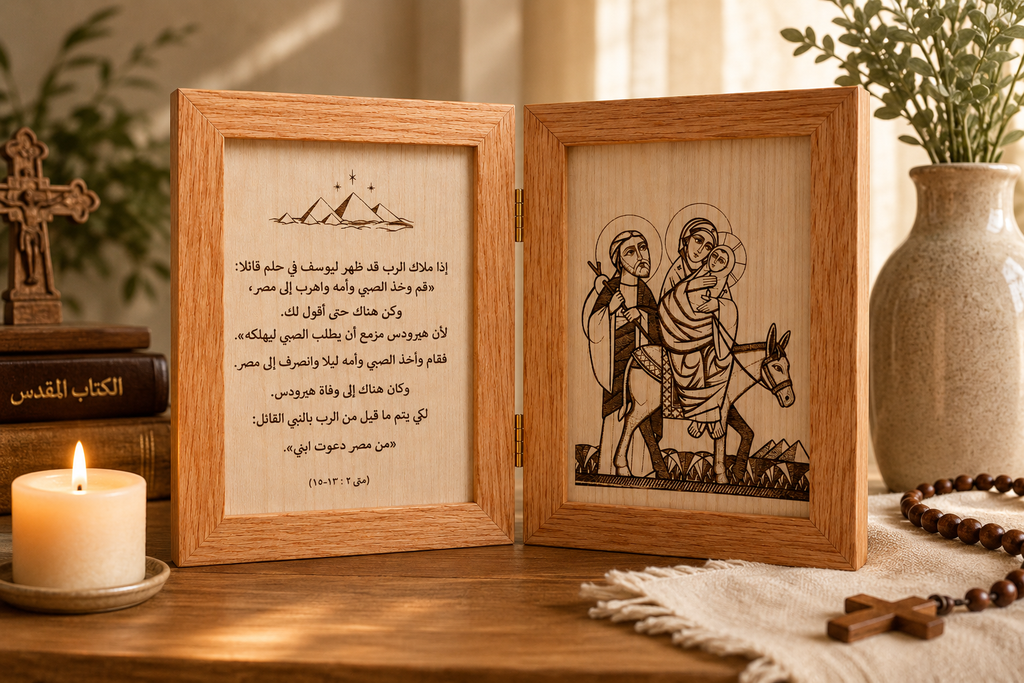 إذا ملاك الرب قد ظهر ليوسف في حلم قائلا:
«قم وخذ الصبي وأمه واهرب إلى مصر،
وكن هناك حتى أقول لك.
لأن هيرودس مزمع أن يطلب الصبي ليهلكه».
فقام وأخذ الصبي وأمه ليلا وانصرف إلى مصر.
وكان هناك إلى وفاة هيرودس.
لكي يتم ما قيل من الرب بالنبي القائل:
«من مصر دعوت ابني».
(متى ٢ : ١٣-١٥)
الكتاب المقدس